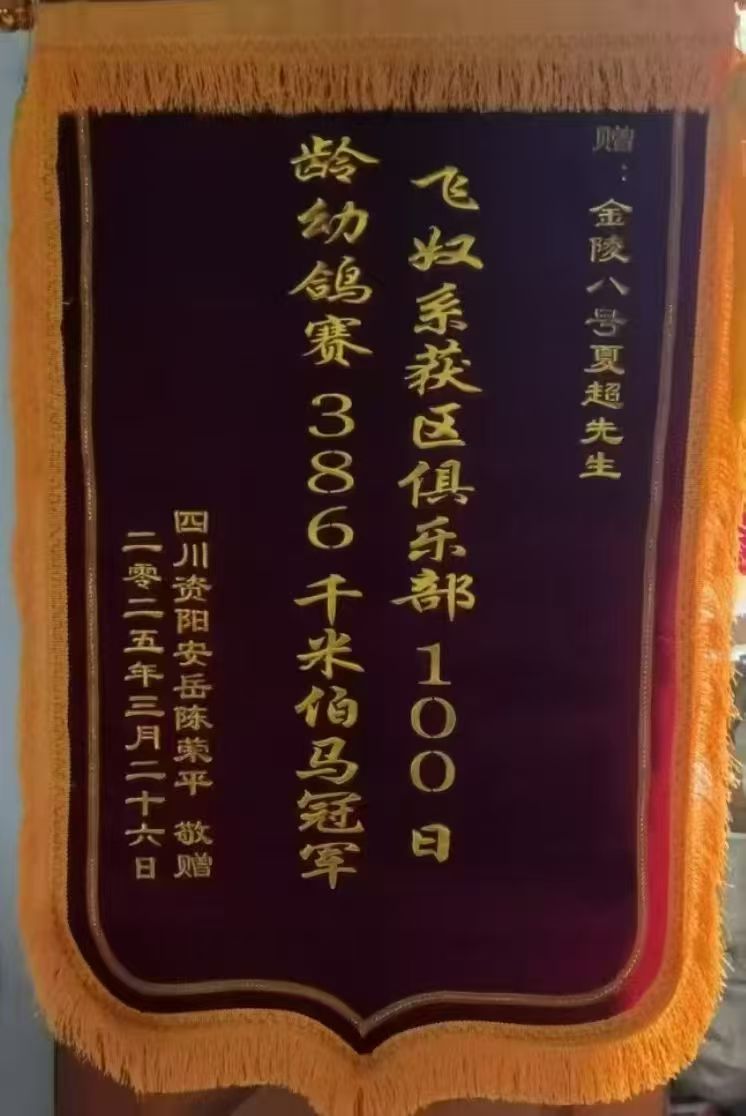 赠：金陵八号夏超先生
飞奴系获区俱乐部100日
龄幼鸽赛386千米伯马冠军
四川资阳安岳陈荣平 敬赠
二零二五年三月二十六日